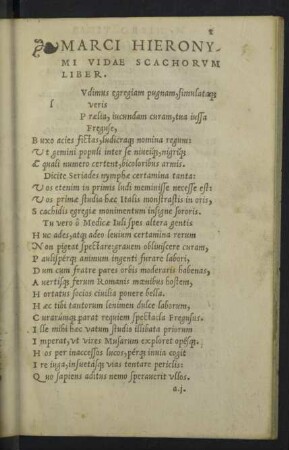 2
MARCI HIERONY
MI VIDAE SCACHORVM
LIBER.
Vdimus egregiam pugnam, simulataq;
l
veris
Prælia, iucundam curam, tua iussa
Fregose,
Buxo acies fictas, ludicraq; nomina regum:
Vt gemini populi inter se niueiq;, nigriq;
Et quali numero certent, bicoloribus armis.
Dicite Seriades nymphæ certamina tanta:
Vos etenim in primis ludi meminisse necesse est:
Vos primæ studia hæc Italis monstrastis in oris,
Scacchidis egregiæ monimentum insigne sororis.
Tu vero ô Medicæ Iuli spes altera gentis
Huc ades, atq; adeo leuium certamina rerum
Non pigeat spectare: grauem obliuiscere curam,
Paulisperq; animum ingenti furare labori,
Dum cum fratre pares orbis moderaris habenas,
Auertisq; ferum Romanis mœnibus hostem,
Hortatus socias ciuilia ponere bella.
Hæc tibi tantorum lenimen dulce laborum,
Curarumq; parat requiem spectata Fregosus.
Ille mihi hæc vatum studiis illibata priorum
Imperat, vt vires Musarum exploret opesq;.
Hos per inaccessos lucos, perq; inuia cogit
Ire iuga, insuetasq; vias tentare periclis:
Quo sapiens aditus nemo sperauerit vllos.
a.j.